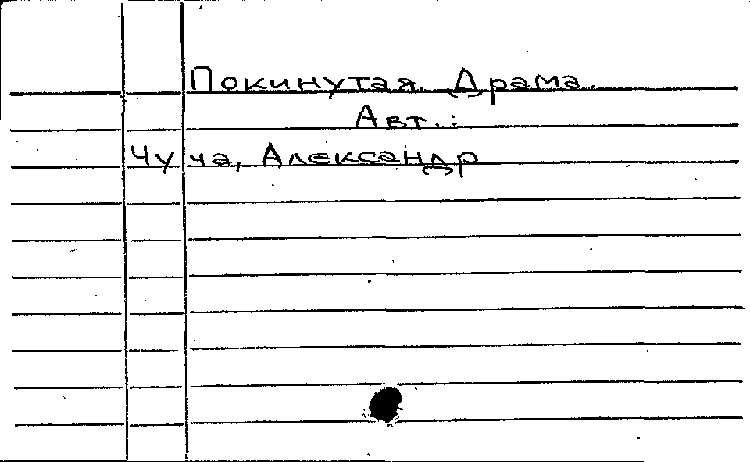 Покинутая. Драма.
Авт.:
Чуча, Александр